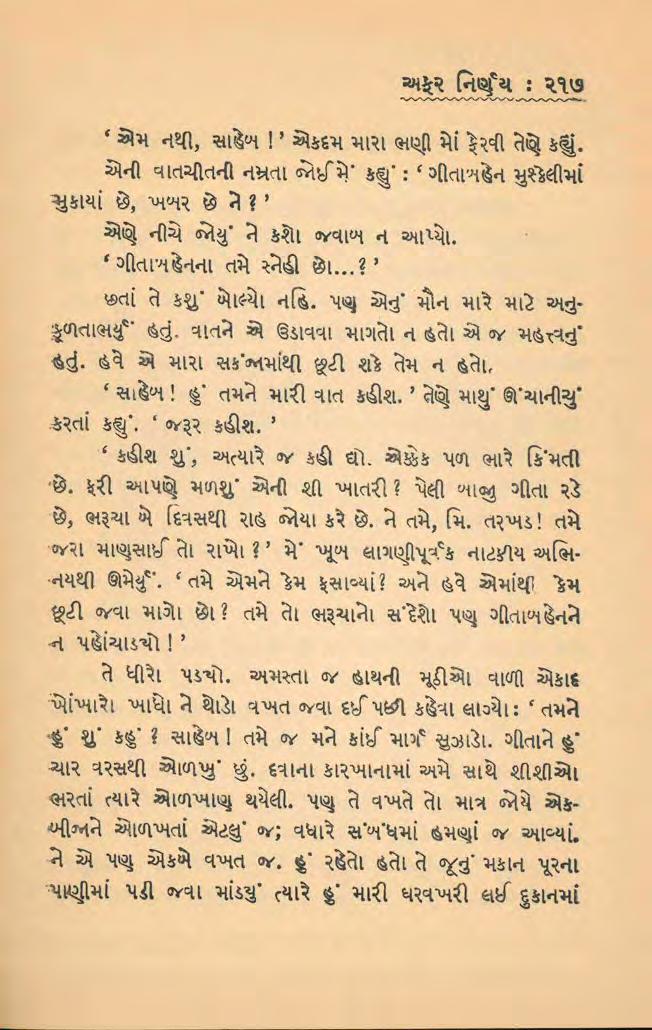 અફર નિર્ણય : ૨૧૭
‘ એમ નથી, સાહેબ !’ એકદમ મારા ભણી મોં ફેરવી તેણે કહ્યું.
એની વાતચીતની નમ્રતા જોઈ મેં કહ્યું : ‘ ગીતાબહેન મુશ્કેલીમાં
મુકાયાં છે, ખબર છે ને ? ’
એણે નીચે જોયું ને કશો જવાબ ન આપ્યો.
‘ ગીતાબહેનના તમે સ્નેહી છો...? ’
છતાં તે કશું બોલ્યો નહિ. પણ એનું મૌન મારે માટે અનુ-
કૂળતાભર્યું હતું. વાતને એ ઉડાવવા માગતો ન હતો એ જ મહત્ત્વનું
હતું. હવે એ મારા સકંજામાંથી છૂટી શકે તેમ ન હતો.
‘ સાહેબ ! હું તમને મારી વાત કહીશ. ’ તેણે માથું ઊંચાનીચું
કરતાં કહ્યું. ‘ જરૂર કહીશ. ’
‘ કહીશ શું, અત્યારે જ કહી દ્યો. એક્કેક પળ ભારે કિંમતી
છે. ફરી આપણે મળશું એની શી ખાતરી ? પેલી બાજુ ગીતા રડે
છે, ભરૂચા બે દિવસથી રાહ જોયા કરે છે. ને તમે, મિ. તરખડ ! તમે
જરા માણસાઈ તો રાખો ? ’ મેં ખૂબ લાગણીપૂર્વક નાટકીય અભિ-
નયથી ઊમેર્યું. ‘ તમે એમને કેમ ફસાવ્યાં ? અને હવે એમાંથી કેમ
છૂટી જવા માગો છો ? તમે તો ભરૂચાનો સંદેશો પણ ગીતાબહેનને
ન પહોંચાડ્યો ! ’
તે ધીરો પડ્યો. અમસ્તા જ હાથની મૂઠીઓ વાળી એકાદ
ખોંખારો ખાધો ને થોડો વખત જવા દઈ પછી કહેવા લાગ્યો : ‘ તમને
હું શું કહું ? સાહેબ ! તમે જ મને કાંઈ માર્ગ સુઝાડો. ગીતાને હું
ચાર વરસથી ઓળખું છું. દવાના કારખાનામાં અમે સાથે શીશીઓ
ભરતાં ત્યારે ઓળખાણ થયેલી. પણ તે વખતે તો માત્ર જોયે એક-
બીજાને ઓળખતાં એટલું જ; વધારે સંબંધમાં હમણાં જ આવ્યાં.
ને એ પણ એકબે વખત જ. હું રહેતો હતો તે જૂનું મકાન પૂરના
પાણીમાં પડી જવા માંડયું ત્યારે હું મારી ઘરવખરી લઈ દુકાનમાં